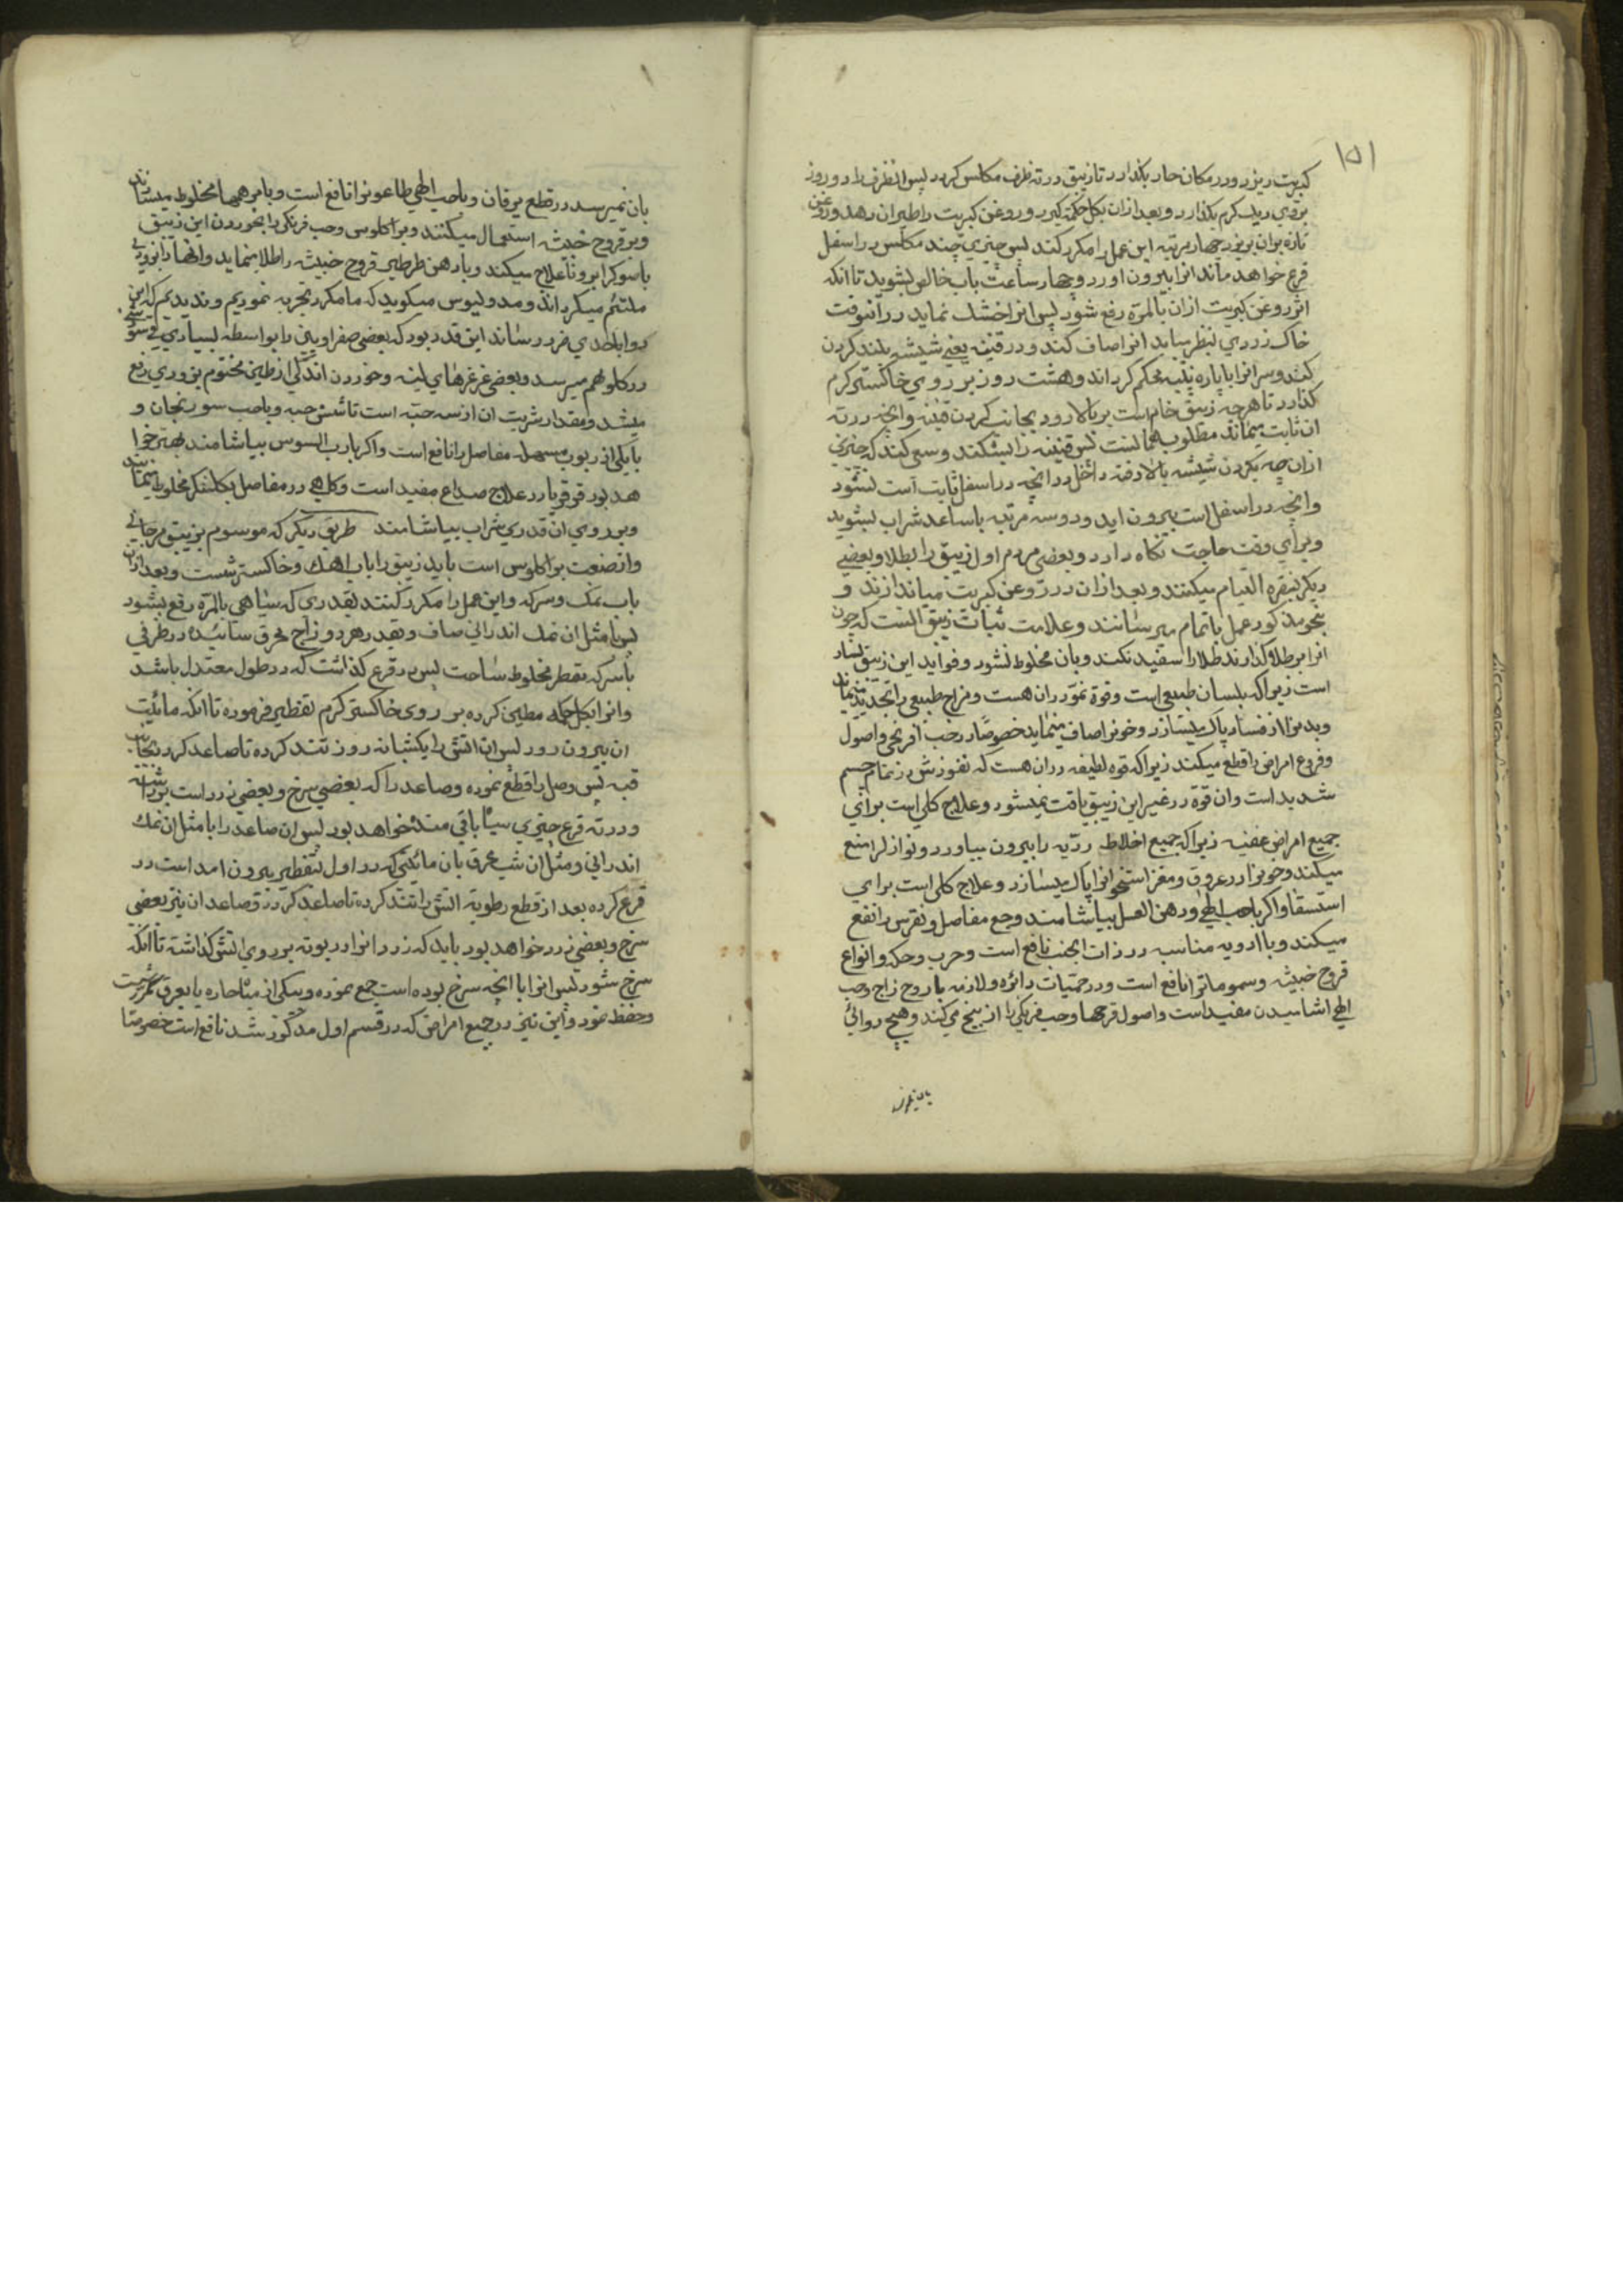 ۱۵۱
کبریت ریزد و در مکان حار بکذارد تا زیبق در ته ظرف مکلس کردد پس انظرف را دو روز
بروی ریک کرم بکذارد و بعد ازان بکل حکمت کیرد و روغن کبریت را طیران دهد و روغن
تازه بران بریزد چهار مرتبه این عمل را مکرر کند پس چیزی چند مکلس در اسفل
قرع خواهد ماند انرا بیرون اورد و چهار ساعت باب خالص بشوید تا انکه
اثر روغن کبریت ازان بالمرّه رفع شود پس انرا خشک نماید در آنوقت
خاک زردی بنظر میاید انرا صاف کند و در قنینه یعنی شیشه بلند کردن
کند و سر انرا با پاره پنبه محکم کرداند و هشت روز بر روی خاکستر کرم
کذارد تا هرچه زیبق خام است بر بالا رود بجانب کردن قنینه و انچه در ته
ان ثابت میماند مطلوب همانست پس قنینه را بشکند و سعی کند که چیزی
ازان چه بکردن شیشه بالا رفته داخل در انچه در اسفل ثابت است نشود
و انچه در اسفل است بیرون اید و دو سه مرتبه باساعد شراب بشوید
و برای وقت حاجت نکاه دارد و بعضی مردم اول زیبق را بطلا و بعضی
دیکر بنقره التیام میکنند و بعد ازان در روغن کبریت میاندازند و
بنحو مذکور عمل باتمام میرسانند و علامت ثبات زیبق انست که چون
انرا بر طلا کذارند طلا را سفید نکند و بان مخلوط نشود و فواید این زیبق بسیار
است زیرا که بلسان طبیعی است و قوة نمو دران هست و مزاج طبیعی را تجدید مینماید
و بدنرا از فساد پاک میسازد و خونرا صاف مینماید خصوصًا در حب افرنجی و اصول
و فروع امراض را قطع میکند زیرا که قوه لطیفه دران هست که نفوذش در تمام جسم
شدید است و ان قوّة در غیر این زیبق یافت نمیشود و علاج کلی است برای
جمیع امراض عفنیه زیرا که جمیع اخلاط ردّیه را بیرون بیاورد و نوازلرا منع
میکند و خونرا در عروق و مغز استخوانرا پاک میسازد و علاج کلی است برای
استسقا و اکر باحب الطی و دهن العسل بیاشامند وجع مفاصل و نقرس را نفع
میکند و با ادویه مناسبه در ذات الجنب نافع است و جرب و حکه و انواع
قروح خبیثه و سمومات را نافع است و در حمیّات دائره و لازمه با روح زاج و حب
الطی اشامیدن مفید است و اصول قرحها و حب فرنکی را از بیخ میکند و هیچ دوائی
بان نمیرسد
بان نمیرسد در قطع یرقان و باحب الطی طاعونرا نافع است و با مرهمها مخلوط میسازند
و بر قروح خبیثه استعمال میکنند و براکلوس وحب فرنکی را بخوردن این زیبق
علاج میکند و با دهن طرطیر قروح خبیثه را طلا مینماید و انها را بزودی
ملتئم میکرداند و مدولیوس میکوید که ما مکرر تجربه نمودیم و ندیدیم که این
دوا باحدی ضرر رساند این قدر بود که بعضی صفراویین را بواسطه بسیاری
در کلو بهم میرسد و بعضی غرغرهای لینه و خوردن اندکی از طین مختوم بزودی رفع
میشد و مقدار شربت ان از سه حبّه است تا شش حبه و باحب سورنجان و
با یکی از ربوب مسهله مفاصل را نافع است و اکر با رب السوس بیاشامند بهتر خوا
هد بود در علاج صداع مفید است و در مفاصل بکلشکر مخلوط مینمایند
و بر روی ان قدری شراب بیاشامند طریق دیکر که موسوم بزیبق مرجانی
و از صنعت براکلوس است باید زیبق را باب اهک و خاکستر شست و بعد ازان
باب نمک و سرکه و این عمل را مکرر کنند بقدری که سیاهی بالمرّه رفع بشود
پس با مثل ان نمک اندرانی صاف و بقدر هر دو زاج محرق سائیده در ظرفی
با سرکه مقطر مخلوط ساخت پس در قرع کذاشت که در طول معتدل باشد
و انرا بکل حکمه مطین کرده بر روی خاکستر کرم تقطیر فرموده تا انکه مائیت
ان بیرون رود پس ان اتش را یکشبانه روز تند کرده تا صاعد کردد بجانب
قبه پس وصل را قطع نموده و صاعد را که بعضی سرخ و بعضی زرد است برداشته
و در ته قرع چیزی سیاه باقی مانده خواهد بود پس ان صاعد را با مثل ان نمک
اندرانی و مثل ان شب محرق بان مائیتی که در اول بتقطیر بیرون امد است در
قرع کرده بعد از قطع رطوبة اتش را تند کرده تا صاعد کردد و صاعد ان نیز بعضی
سرخ و بعضی زرد خواهد بود باید که زرد انرا در بوته بر روی اتش کذاشته تا انکه
سرخ شود پس انرا با انچه سرخ بوده است جمع نموده و بیکی از میاه حاره یا بعرق
و حفظ نمود و این نیز در جمیع امراض که در قسم اول مذکور شد نافع است خصوصا